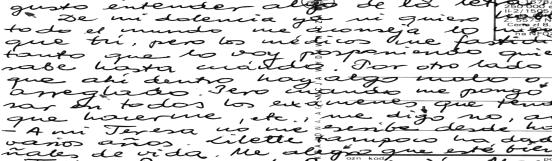 gusto entender algo de la let
De mi dolencia ya ni quiero
todo el mundo me aconseja lo
que tú, pero los médicos me
tanto que lo voy posponiendo quie
sabe hasta cuándo. Por otro lado
que ahí dentro hay algo malo o
arreglado. Pero cuando me pongo
sar en todos los exámenes que ten
que hacerme, etc., me digo no,
- A mi Teresa no me escribe desde ha
varios años. Lilette tampoco ha da
ñales de vida. Me alegro que esté bien